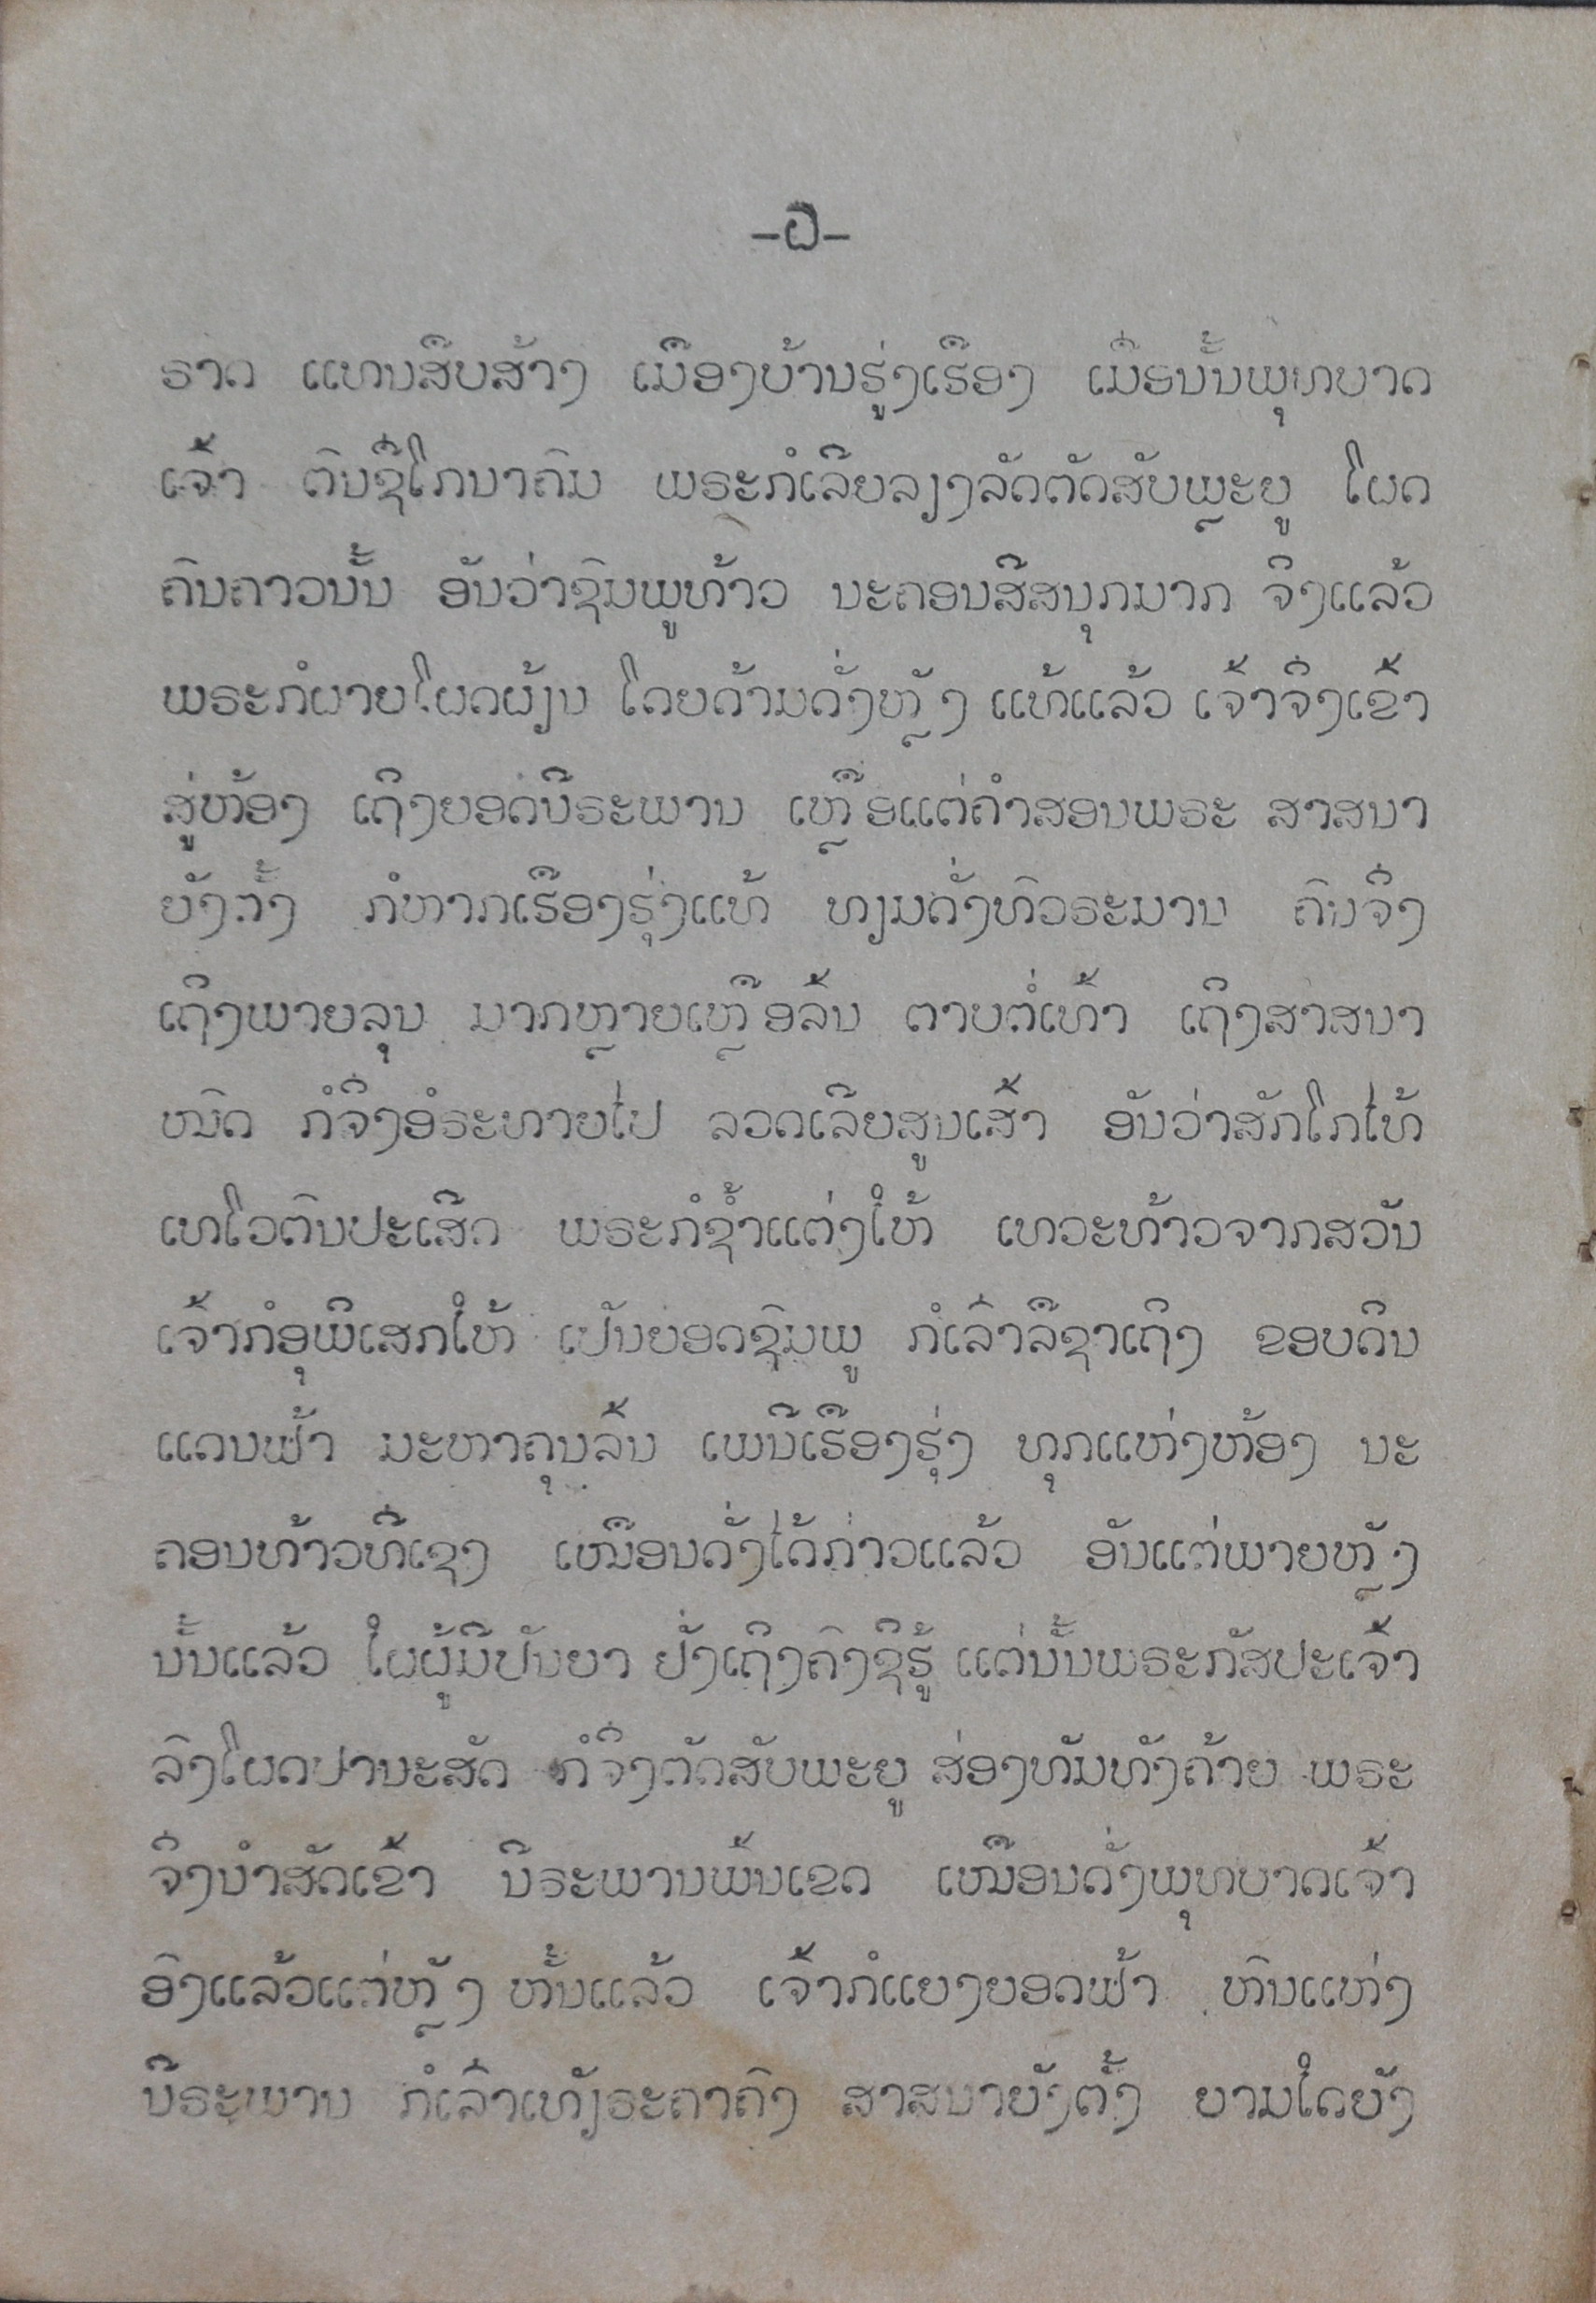 -໖-
ຣາດ ແທນສືບສ້າງ ເມືອງບ້ານຮູ່ງເຮືອງ ເມື່ອນັ້ນພຸທບາດ
ເຈົ້າ ຕົນຊື່ໂກນາຄົມ ພຣະກໍເລີຍລຽງລັດຕັດສັບພຼະຍູ ໂຜດ
ຄົນຄາວນັ້ນ ອັນວ່າຊົມພູທ້າວ ນະຄອນສີສນຸກມາກ ຈິງແລ້ວ
ພຣະກໍຜາຍໂຜດຜ້ຽນ ໂດຍດ້ານດັ່ງຫຼັງ ແທ້ແລ້ວ ເຈົ້າຈຶ່ງເຂົ້າ
ສູ່ຫ້ອງ ເຖິງຍອດນີຣະພານ ເຫຼືອແຕ່ຄໍາສອນພຣະ ສາສນາ
ຍັງຕັ້ງ ກໍຫາກເຮືອງຮຸ່ງແທ້ ທຽມດັ່ງທິວຣະມານ ຄົນຈຶ່ງ
ເຖິງພາຍລຸນ ມາກຫຼາຍເຫຼືອລົ້ນ ຕາບຕໍ່ເທົ້າ ເຖິງສາສນາ
ໝົດ ກໍຈຶ່ງອໍຣະທາຍໄປ ລວດເລີຍສູນເສົ້າ ອັນວ່າສັກໂກໄທ້
ເທໂວຕົນປະເສີດ ພຣະກໍຊໍ້າແຕ່ງໃຫ້ ເທວະທ້າວຈາກສວັນ
ເຈົ້າກໍອຸພິເສກໃຫ້ ເປັນຍອດຊົມພູ ກໍເລົ່າລືຊາເຖິງ ຂອບດິນ
ແດນຟ້າ ມະຫາຄຸນລົ້ນ ເພນີເຮືອງຮຸ່ງ ທຸກແຫ່ງຫ້ອງ ນະ
ຄອນທ້າວທີ່ເຊງ ເໝືອນດັ່ງໄດ້ກ່າວແລ້ວ ອັນແຕ່ພາຍຫຼັງ
ນັ້ນແລ້ວ ໃຜຜູ້ມີປັນຍາ ຢັ່ງເຖິງຄົງຊິຮູ້ ແຕ່ນັ້ນພຣະກັສປະເຈົ້າ
ລົງໂຜດປານະສັດ ກໍຈຶ່ງຕັດສັບພະຍູ ສ່ອງທັມທັງຄ້າຍ ພຣະ
ຈຶ່ງນໍາສັດເຂົ້າ ນີຣະພານພົ້ນເຂດ ເໝືອນດັ່ງພຸທບາດເຈົ້າ
ອົງແລ້ວແຕ່ຫຼັງ ຫັ້ນແລ້ວ ເຈົ້າກໍແຍງຍອດຟ້າ ຫົນແຫ່ງ
ນີຣະພານ ກໍເລົ່າເທັງຣະຄາຄົງ ສາສນາຍັງຕັ້ງ ຍາມໃດຍັງ